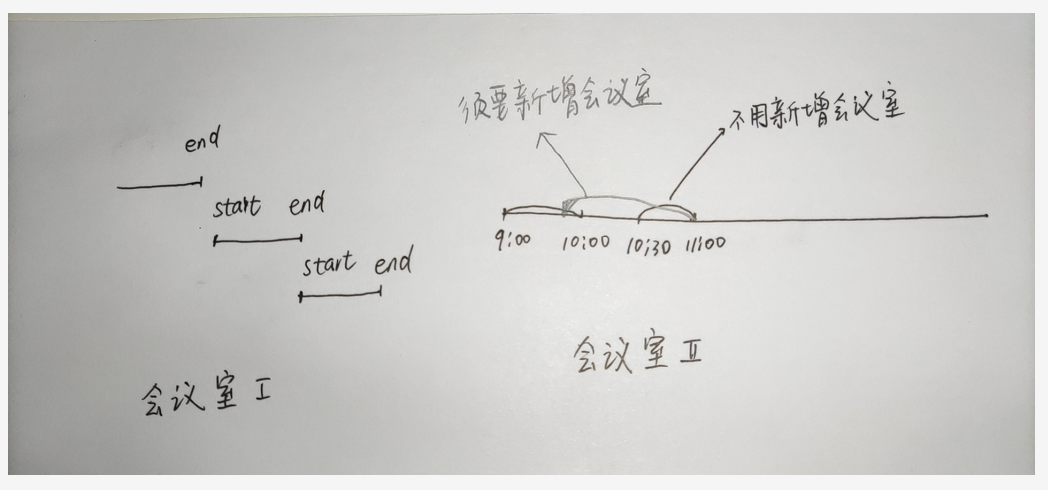 end
start end
start end
会议室 I
须要新增会议室
不用新增会议室
9:00 10:00 10:30 11:00
会议室 II